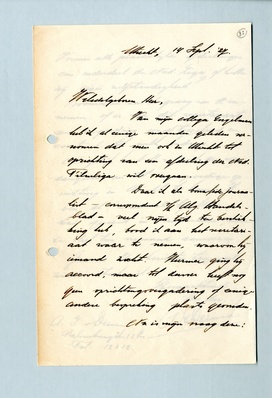 Utrecht, 14 Sept. '27.
Weledelgeboren Heer,
Van mijn collega Engelman
heb ik al eenige maanden geleden ver-
nomen dat men ook in Utrecht tot
oprichting van een afdeeling der Ned.
Filmliga wil overgaan.
Daar ik als bureau journa-
list – correspondent v/h Alg. Handels-
blad – veel vrijen tijd te beschik-
king heb, bood ik aan het secretari-
aat waar te nemen, waarvoor hij
iemand zocht. Hiermee ging hij
accoord, maar tot dusver heeft nog
geen oprichtingsvergadering of eenige
andere bespreking plaats gevonden.
Nu is mijn vraag deze: